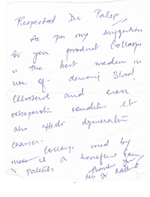 Respected Dr Patep
As per my suggestion
to your product Collagen
is the best medicine in
use of dencing Blood
Cholesterol and even
osteoporotic condition it
also effects dgeneration
changes.
Collagen used by
is a beneficial
patients